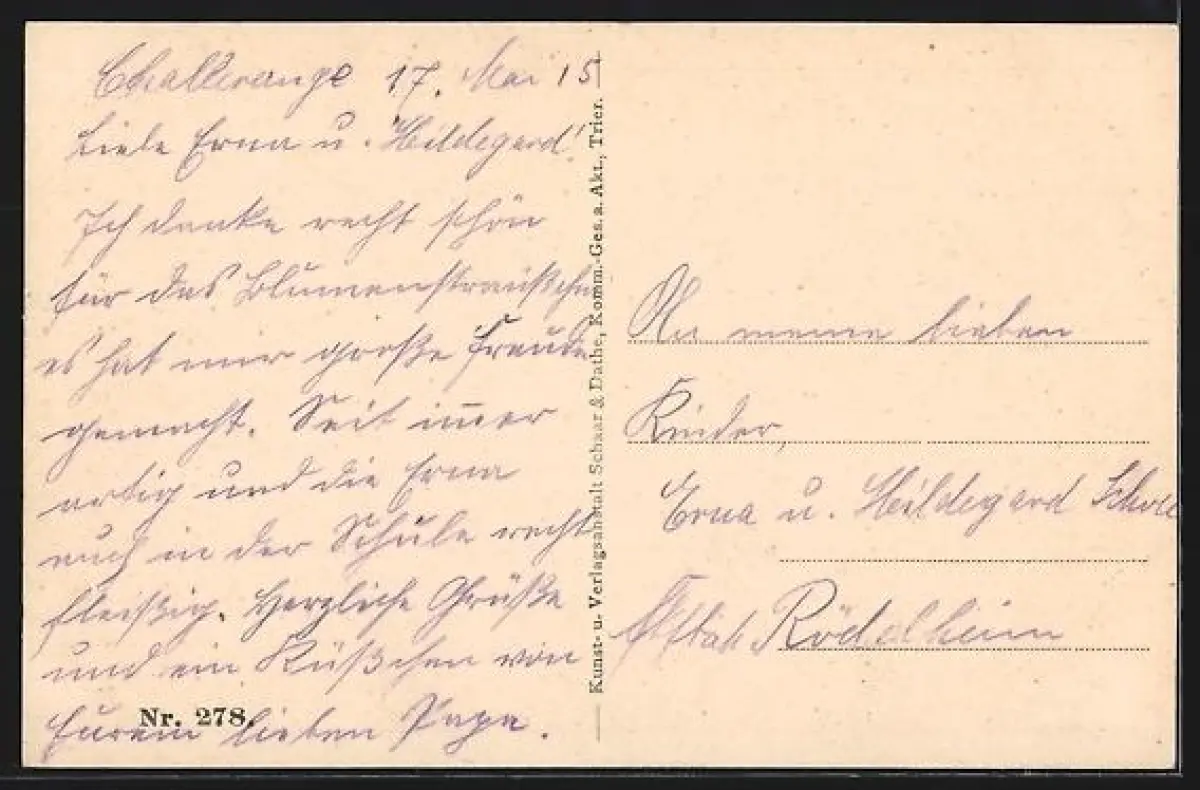 Challerange 17. Mai 15
Liebe Erna u. Hildegard!
Ich danke recht schön
für das Blumensträußchen
es hat mir große Freude
gemacht. Seit im̄er
artig und die Erna
auch in der Schule recht
fleißig. Herzliche Grüße
und ein Küßchen von
Eurem lieben Papa.
Nr. 278.
Kunst- u. Verlagsanstalt Schaar & Dathe, Komm.-Ges. a. Akt., Trier.
An meine lieben
Kinder,
Erna u. Hildegard
Rödelheim